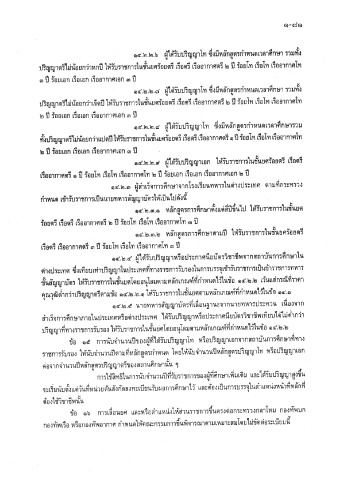 ๑๔.๒.๒.๖ ผู้ได้รับปริญญาโท ซึ่งมีหลักสูตรกำหนดเวลาศึกษา รวมทั้ง
ปริญญาตรีไม่น้อยกว่าหกปี ให้รับราชการในชั้นยศร้อยตรี เรือตรี เรืออากาศตรี ๒ ปี ร้อยโท เรือโท เรืออากาศโท
๑ ปี ร้อยเอก เรือเอก เรืออากาศเอก ๑ ปี
ผู้ได้รับปริญญาโท ซึ่งมีหลักสูตรกำหนดเวลาศึกษา รวมทั้ง
ปริญญาตรีไม่น้อยกว่าเจ็ดปี ให้รับราชการในชั้นยศร้อยตรี เรือตรี เรืออากาศตรี ๒ ปี ร้อยโท เรือโท เรืออากาศโท
๒ ปี ร้อยเอก เรือเอก เรืออากาศเอก ๑ ปี
๑๔.๒.๒.๘ ผู้ได้รับปริญญาโท ซึ่งมีหลักสูตรกำหนดเวลาศึกษารวม
ทั้งปริญญาตรีไม่น้อยกว่าแปดปี ให้รับราชการในชั้นยศร้อยตรี เรือตรี เรืออากาศตรี ๑ ปี ร้อยโท เรือโท เรืออากาศโท
๒ ปี ร้อยเอก เรือเอก เรืออากาศเอก ๑ ปี
๑๔.๒.๒.๙ ผู้ได้รับปริญญาเอก ให้รับราชการในชั้นยศร้อยตรี เรือตรี
เรืออากาศตรี ๑ ปี ร้อยโท เรือโท เรืออากาศโท ๒ ปี ร้อยเอก เรือเอก เรืออากาศเอก ๒ ปี
๑๔.๒.๓ ผู้สำเร็จการศึกษาจากโรงเรียนทหารในต่างประเทศ ตามที่กระทรวง
กำหนด เข้ารับราชการเป็นนายทหารสัญญาบัตรให้เป็นไปดังนี้
๑๔.๒.๓.๑ หลักสูตรการศึกษาตั้งแต่สี่ปีขึ้นไป ให้รับราชการในชั้นยศ
ร้อยตรี เรือตรี เรืออากาศตรี ๒ ปี ร้อยโท เรือโท เรืออากาศโท ๓ ปี
๑๔.๒.๓.๒ หลักสูตรการศึกษาสามปี ให้รับราชการในชั้นยศร้อยตรี
เรือตรี เรืออากาศตรี ๓ ปี ร้อยโท เรือโท เรืออากาศโท ๓ ปี
๑๔.๒.๔ ผู้ได้รับปริญญาหรือประกาศนียบัตรวิชาชีพจากสถาบันการศึกษาใน
ต่างประเทศ ซึ่งเทียบเท่าปริญญาในประเทศที่ทางราชการรับรองในการบรรจุเข้ารับราชการเป็นข้าราชการทหาร
ชั้นสัญญาบัตร ให้รับราชการในชั้นยศโดยอนุโลมตามหลักเกณฑ์ที่กำหนดไว้ในข้อ ๑๔.๒.๒ เว้นแต่กรณีที่ราคา
คุณวุฒิต่ำกว่าปริญญาตรีตามข้อ ๑๔.๒.๒.๑ ให้รับราชการในชั้นยศตามหลักเกณฑ์ที่กำหนดไว้ในข้อ
๑๔.๒.๕ นายทหารสัญญาบัตรที่เลื่อนฐานะจากนายทหารประทวน เนื่องจาก
สำเร็จการศึกษาภายในประเทศหรือต่างประเทศ ได้รับปริญญาหรือประกาศนียบัตรวิชาชีพเทียบได้ไม่ต่ำกว่า
ปริญญาที่ทางราชการรับรอง ให้รับราชการในชั้นยศโดยอนุโลมตามหลักเกณฑ์ที่กำหนดไว้ในข้อ ๑๔.๒.๒
ข้อ ๑๕ การนับจำนวนปีของผู้ที่ได้รับปริญญาโท หรือปริญญาเอกจากสถาบันการศึกษาที่ทาง
ราชการรับรอง ให้นับจำนวนปีตามที่หลักสูตรกำหนด โดยให้นับจำนวนปีหลักสูตรปริญญาโท หรือปริญญาเอก
ต่อจากจำนวนปีหลักสูตรปริญญาตรีของสถานศึกษานั้น ๆ
การใช้สิทธิในการนับจำนวนปีที่รับราชการของผู้ที่ศึกษาเพิ่มเติม และได้รับปริญญาสูงขึ้น
จะเริ่มนับตั้งแต่วันที่หน่วยต้นสังกัดลงทะเบียนรับผลการศึกษาไว้ และต้องเป็นการบรรจุในตำแหน่งหน้าที่หลักที่
ต้องใช้วิชาชีพนั้น
ข้อ ๑๖ การเลื่อนยศ และหรือตำแหน่งให้ส่วนราชการขึ้นตรงต่อกระทรวงกลาโหม กองทัพบก
กองทัพเรือ หรือกองทัพอากาศ กำหนดให้คณะกรรมการขึ้นพิจารณาตามเหมาะสมโดยไม่ขัดต่อระเบียบนี้